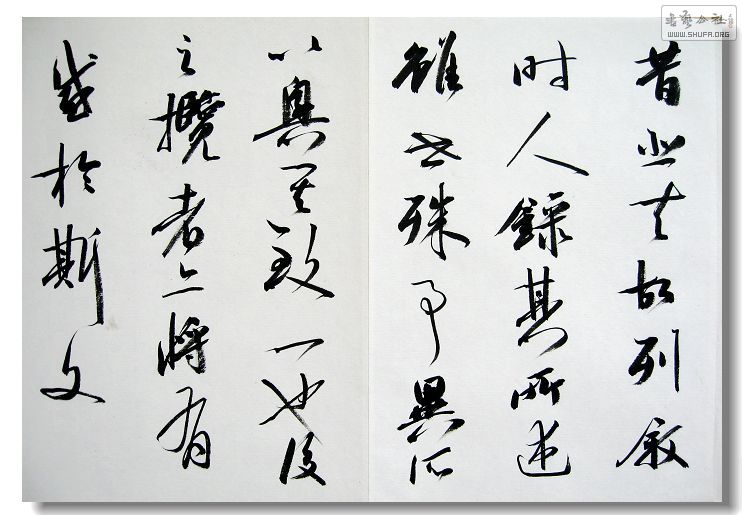 昔悲夫故列叙
时人錄其所述
雖世殊事異所
以興其致一也後
之攬者亦將有
感於斯文
書藝公社
WWW.SHUFA.ORG